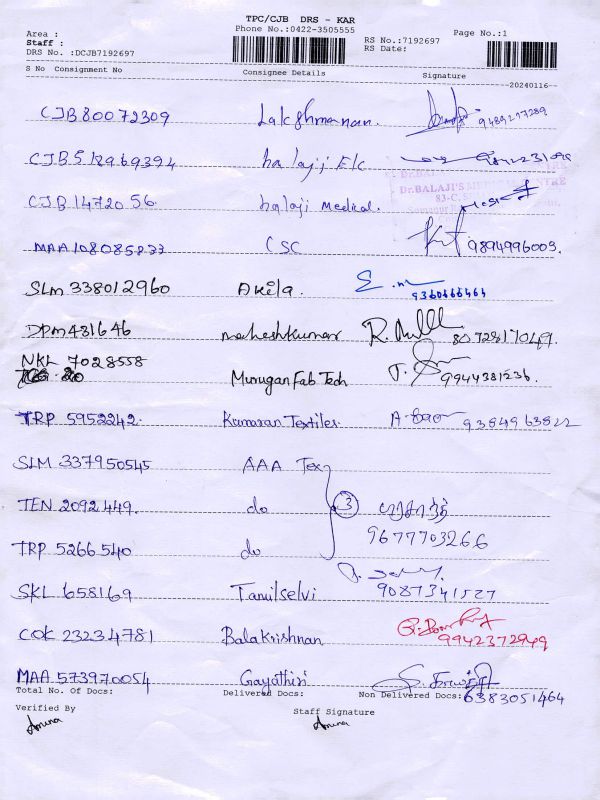 TPC/CJB DRS - KAR
Area : Phone No.:0422-3505555 Page No.:1
Staff : RS No.:7192697
DRS No. :DCJB7192697 RS Date:
S No Consignment No Consignee Details Signature
20240116
CJB 80072309 Lakshmanan. 9489277289
CJB 512969394 balajij E/c
CJB 1472056 balaji Medical.
Dr.BALAJI'S
83-C,
MAA 108085833 CSC 9894996003.
SLM 338012960 Akila. 9360666464
DPM 481646 maheshkumar 8072817049.
NKL 7028558
Murugan Fab Tech 9944381236.
TRP 5952242. Kumaran Textiles. 9384963822
SLM 337950545 AAA Tex
TEN 2092449. do 3
TRP 5266540 do 9677703266
SKL 658169 Tamilselvi 9087341527
COK 23234781 Balakrishnan 9942372949
MAA 573970054 Gayathiri
Total No. Of Docs: Delivered Docs: Non Delivered Docs: 6383051464
Verified By Staff Signature